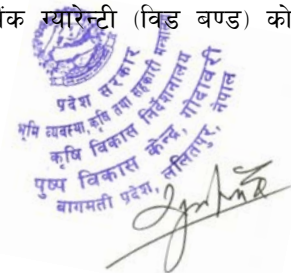 ैंक ग्यारेन्टी (विड बण्ड) को
प्रदेश सरकार
भूमि व्यवस्था, कृषि तथा सहकारी मन्त्रालय
कृषि विकास निर्देशनालय
पुष्प विकास केन्द्र, गोदावरी
बागमती प्रदेश, ललितपुर, नेपाल